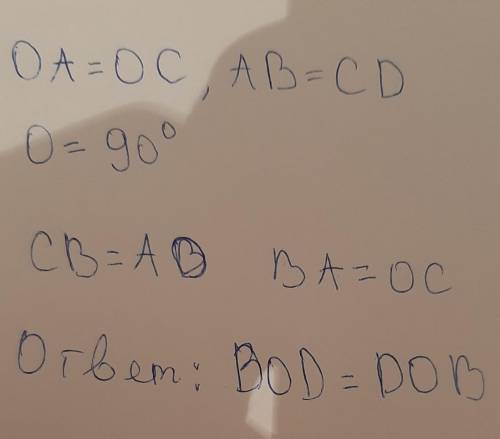 OA=OC, AB=CD
O=90°
CB=AB BA=OC
Ответ: BOD=DOB